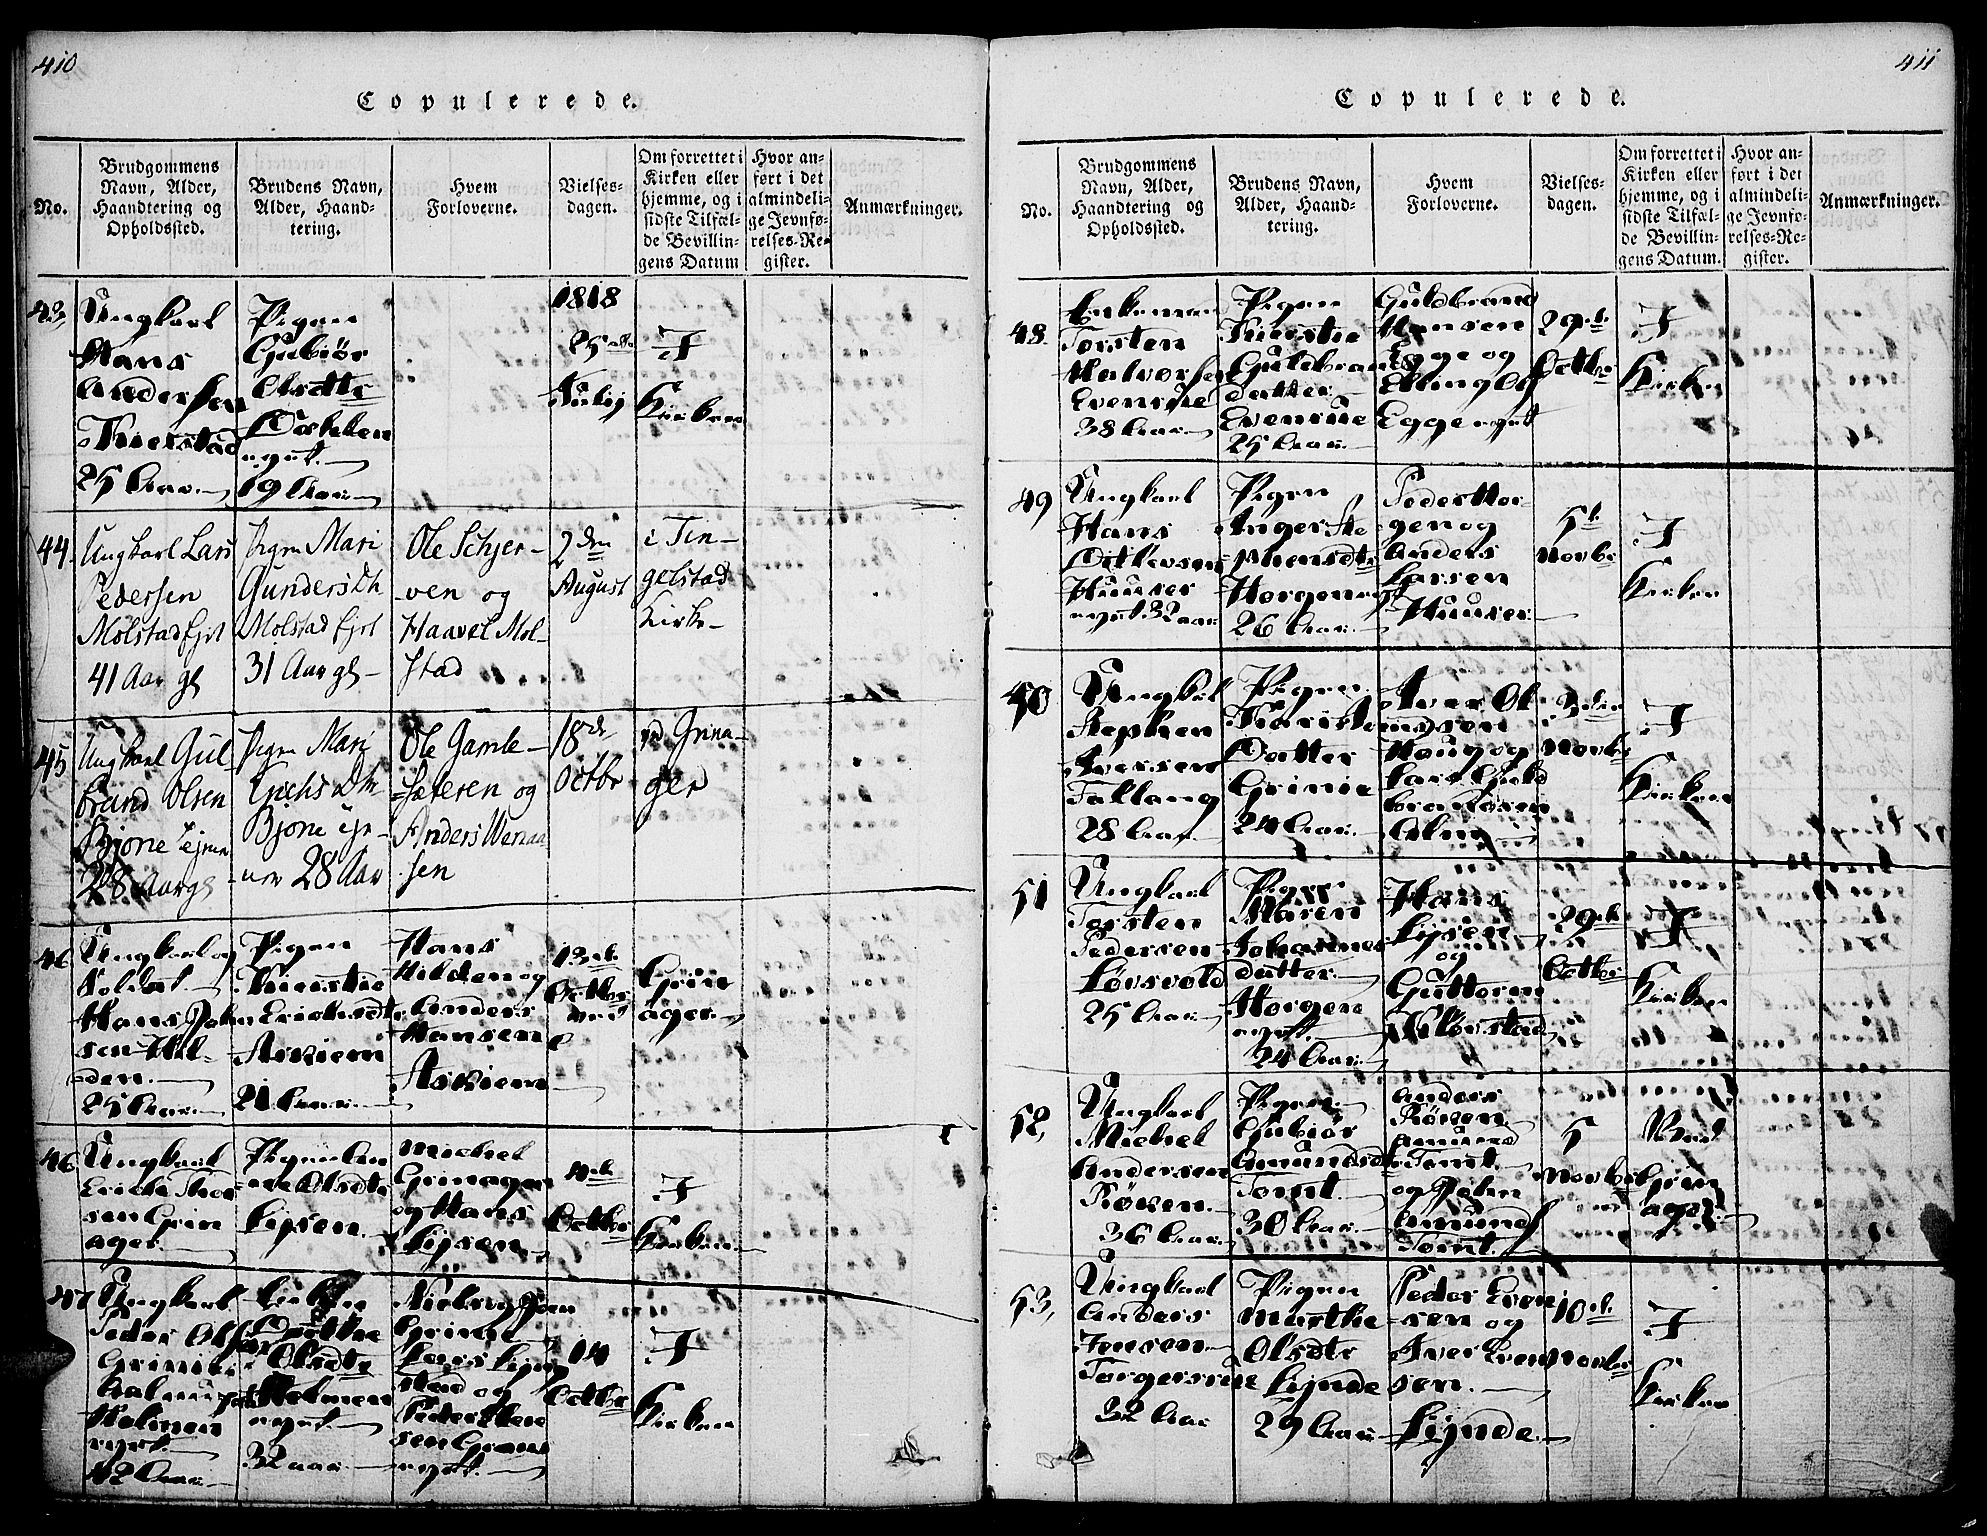 410
Copulerede.
No.
Brudgommens
Navn, Alder,
Haandtering og
Opholdssted.
Brudens Navn,
Alder, Haand-
tering.
Hvem
Forloverne.
Vielses-
dagen.
Om forrettet i
Kirken eller
hjemme, og i
sidste Tilfæl-
de Bevillin-
gens Datum
Hvor an-
ført i det
almindeli-
ge Jevnfø-
relses-Re-
gister.
Anmærkninger.
43,
Ungkarl
Hans
Andersen
25 Aar
Pigen
Gubiør
Olsdtr
19 Aar
1818
25
July
I
Kirken
44.
Ungkarl Lars
Pedersen
Molstad
41 Aar gl
Pigen Mari
Gunders Dtr
Molstad
31 Aar gl
Ole Schjer-
ven og
Haavel Mol-
stad
2den
August
i Tin-
gelstad
Kirke
45
Ungkarl Gul
brand Olsen
Bjone
28 Aar gl
Pigen Mari
Erichs Dtr
Bjone
28 Aar
Ole Gamle-
sæteren og
Anders
sen
18de
Octbr
ved Grina-
ger
46
Ungkarl og
Soldat
Hans John
sen Hil-
den.
25 Aar
Pigen
Kierstie
Erichsdtr
Askiem
21 Aar
Hans
Hilden og
Anders
Hansen
Askiem
13de
Octbr
ved
Grin
ager
46
Ungkarl
Erich Thor
sen Grin
ager
Pigen An
ne Olsdtr
Lysen
Michel
Grinager
og Hans
Lysen
4de
Octbr
I
Kirken
47
Ungkarl
Peder Olsen
Holmen
42 Aar
Olsdtr
Holmen
32 aar
Niels
Grime
Lars
stad og
Peder
sen Gran
14
Octbr
I
Kirken
411
Copulerede.
No.
Brudgommens
Navn, Alder,
Haandtering og
Opholdssted.
Brudens Navn,
Alder, Haand-
tering.
Hvem
Forloverne.
Vielses-
dagen.
Om forrettet i
Kirken eller
hjemme, og i
sidste Tilfæl-
de Bevillin-
gens Datum.
Hvor an-
ført i det
almindeli-
ge Jevnfø-
relses-Re-
gister.
Anmærkninger.
48.
Enkemand
Torsten
Halvorsen
Evensrue
38 Aar
Pigen
Kierstie
Guldbrands
datter
Evensrue
25 Aar
Guldbrand
Hansen
Egge og
Elling
Egge
29de
Octbr
I
Kirken
49
Ungkarl
Hans
Ditlevsen
Huuser
32 aar
Pigen
Inger Ste
phensdtr
Horgen
26 Aar
Peder Hor-
gen og
Anders
Larsen
Huuser
5t
Novbr
I
Kirken
50
Ungkarl
Stephen
Iversen
28 Aar
Pigen
Datter
Grinie
24 Aar
Iver
Haug og
Lars Guld
brandsen
Alm
3die
Novbr
I
Kirken
51
Ungkarl
Torsten
Pedersen
25 Aar
Pigen
Maren
Johannes
datter
Horgen
24 Aar
Hans
Lysen
og
Guttorm
29de
Octbr
I
Kirken
52,
Ungkarl
Michel
Andersen
Røken
36 Aar
Pigen
Gubiør
Amundsdtr
Tomt
30 Aar
Anders
Røken
Amund
Tomt
og John
Amunds
Tomt
5
Novbr
Ved
Grin
ager
53,
Ungkarl
Anders
Jensen
Torgersrue
32 Aar
Pigen
Marthe
Olsdtr
Lynde
29 Aar
Peder Even
sen og
Iver Even
sen
Lynde
10de
Novbr
I
Kirken